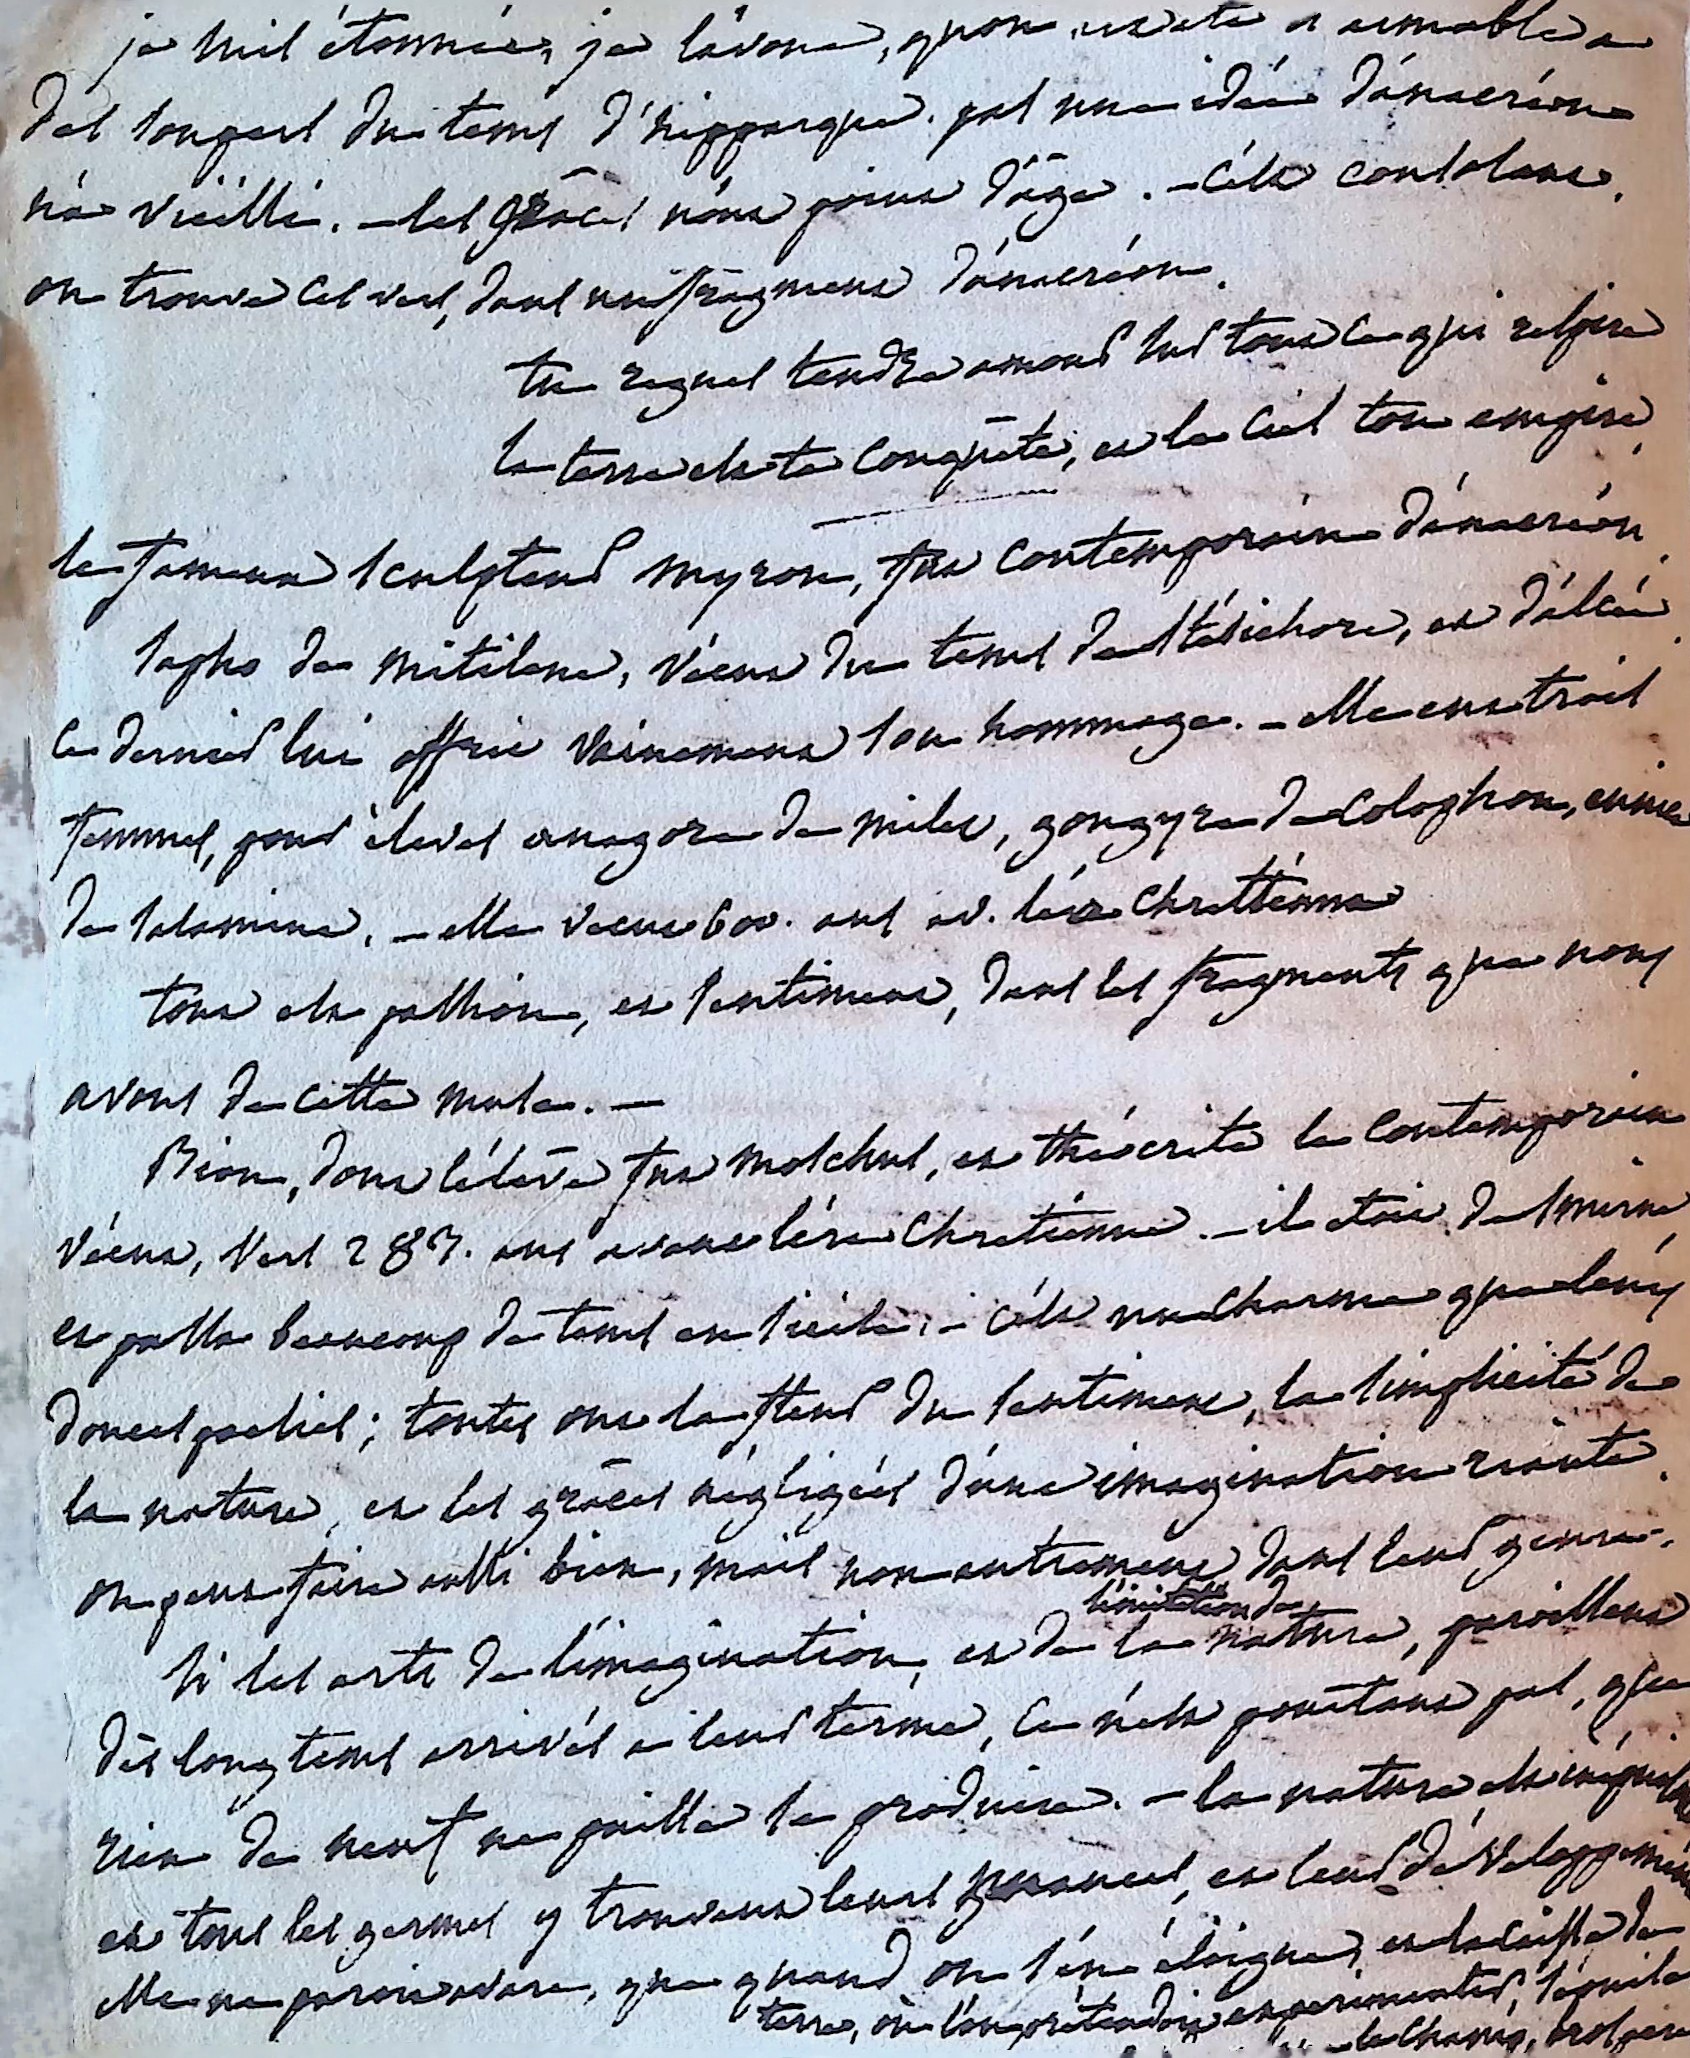 je suis étonnée, je l'avoue, qu'on ait été si aimable a
des soupers du tems d'hipparque. pas une idée d'anacréon
n'a vieilli. — les grâces n'ont point d'âge. — c'est consolant.
on trouve ces vers, dans un fragment d'anacréon.
tu regnes tendre amour sur tout ce qui respire
la terre est ta conquête, et le ciel ton empire.
le fameux sculpteur myron, fut contemporain d'anacréon.
sapho de mitilene, vécut du tems de stésichore, et d'alcée.
ce dernier lui offrit vainement son hommage. — elle eut trois
femmes, pour élèves anagore de milet, gongyre de colophon, eunice
de salamine. — elle vecut 600. ans av. l'ére chrettiénne
tout est passion, et sentiment, dans les fragments que nous
avons de cette muse. —
Bion, dont l'éléve fut moschus, et théocrite le contemporain
vécut, vers 287. ans avant l'ére chretiénne. — il etoit de smirne
et passa beaucoup de tems en sicile. — c'est un charme que leurs
douces poesies; toutes ont la fleur du sentiment, la simplicité de
la nature, et les grâces négligées d'une imagination riante.
on peut faire aussi bien, mais non autrement dans leur genre.
si les arts de l'imagination, et de l'imitation de la nature, paroissent
dès longtems arrivés à leur terme, ce n'est pourtant pas, que
rien de neuf ne puisse se produire. — la nature est inépuisable
et tous les germes y trouvent leurs, et leur développement
elle ne paroit avare, que quand on s'en éloigne, et la caisse de
terre, où l'on prétendoit experimenter, s'épuise
le champ, prospere